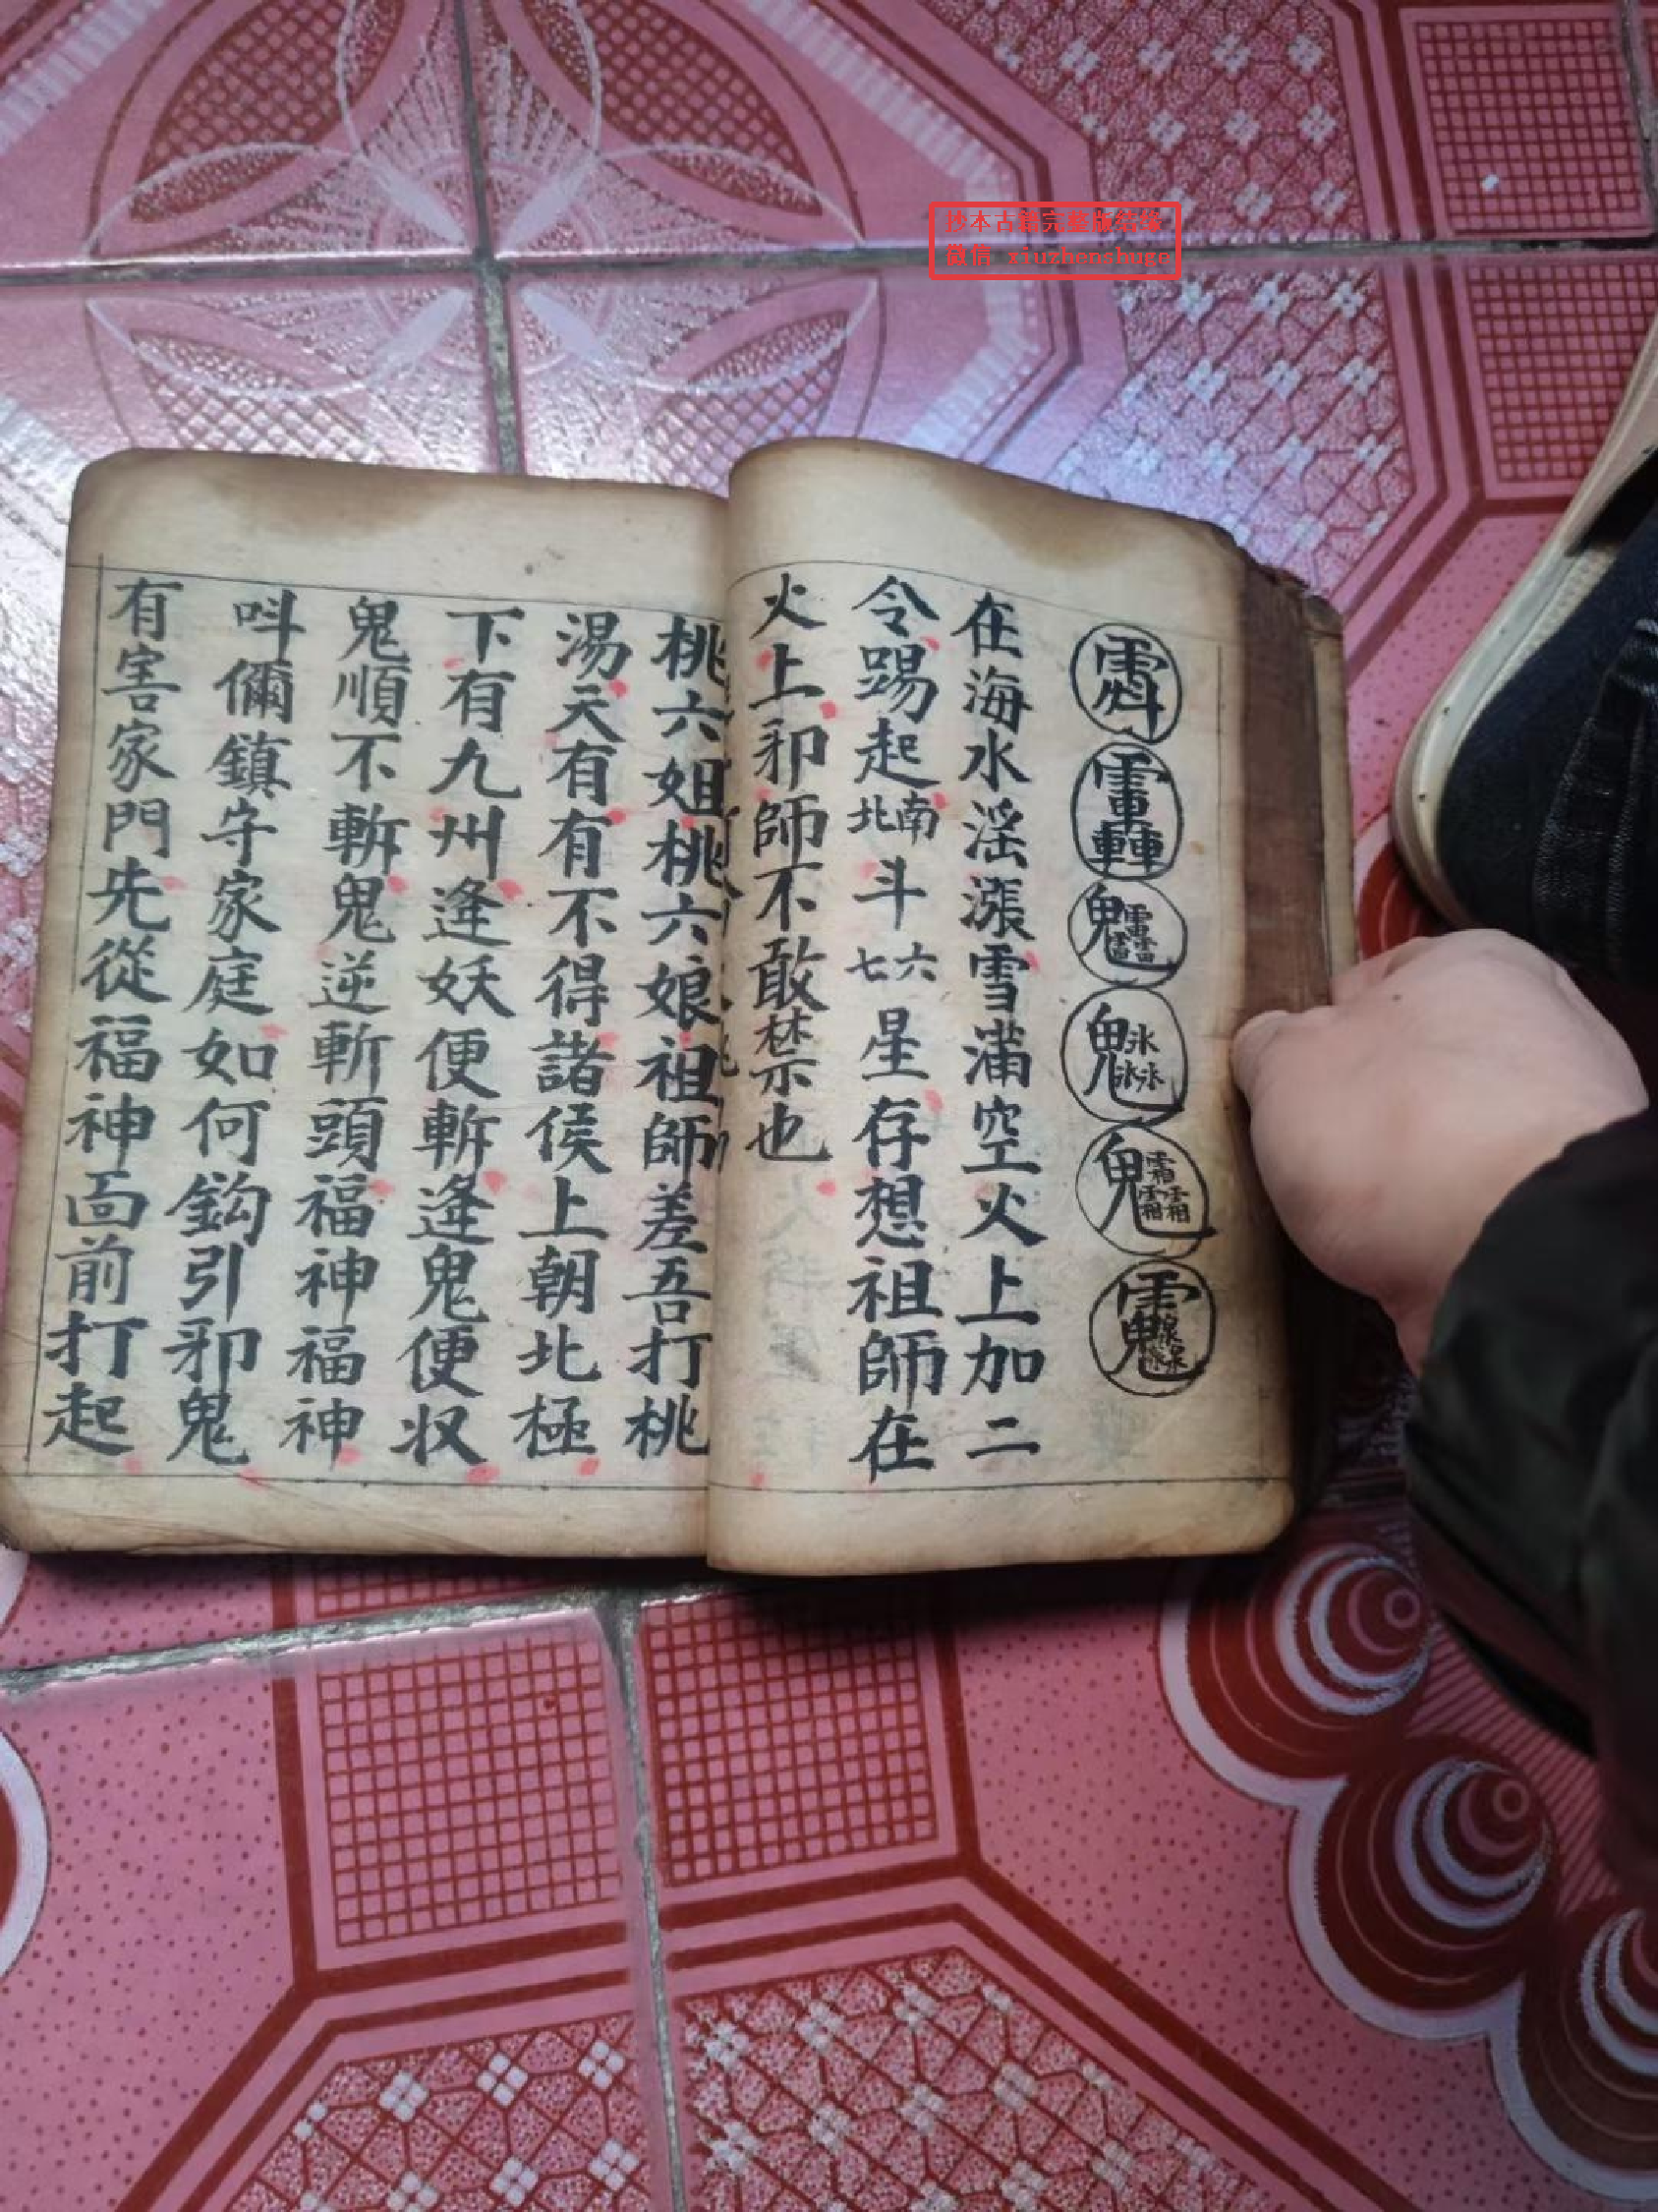 抄本古籍完整版结缘
微信 xiuzhenshuge
在海水滛漲雪滿空火上加二
令踢起南北斗六七星存想祖師在
火上邪師不敢禁也
桃六姐桃六娘祖師差吾打桃
湯天有有不得諸侯上朝北極
下有九州逢妖便斬逢鬼便収
鬼順不斬鬼逆斬頭福神福神
呌儞鎮守家庭如何鈎引邪鬼
有害家門先從福神面前打起